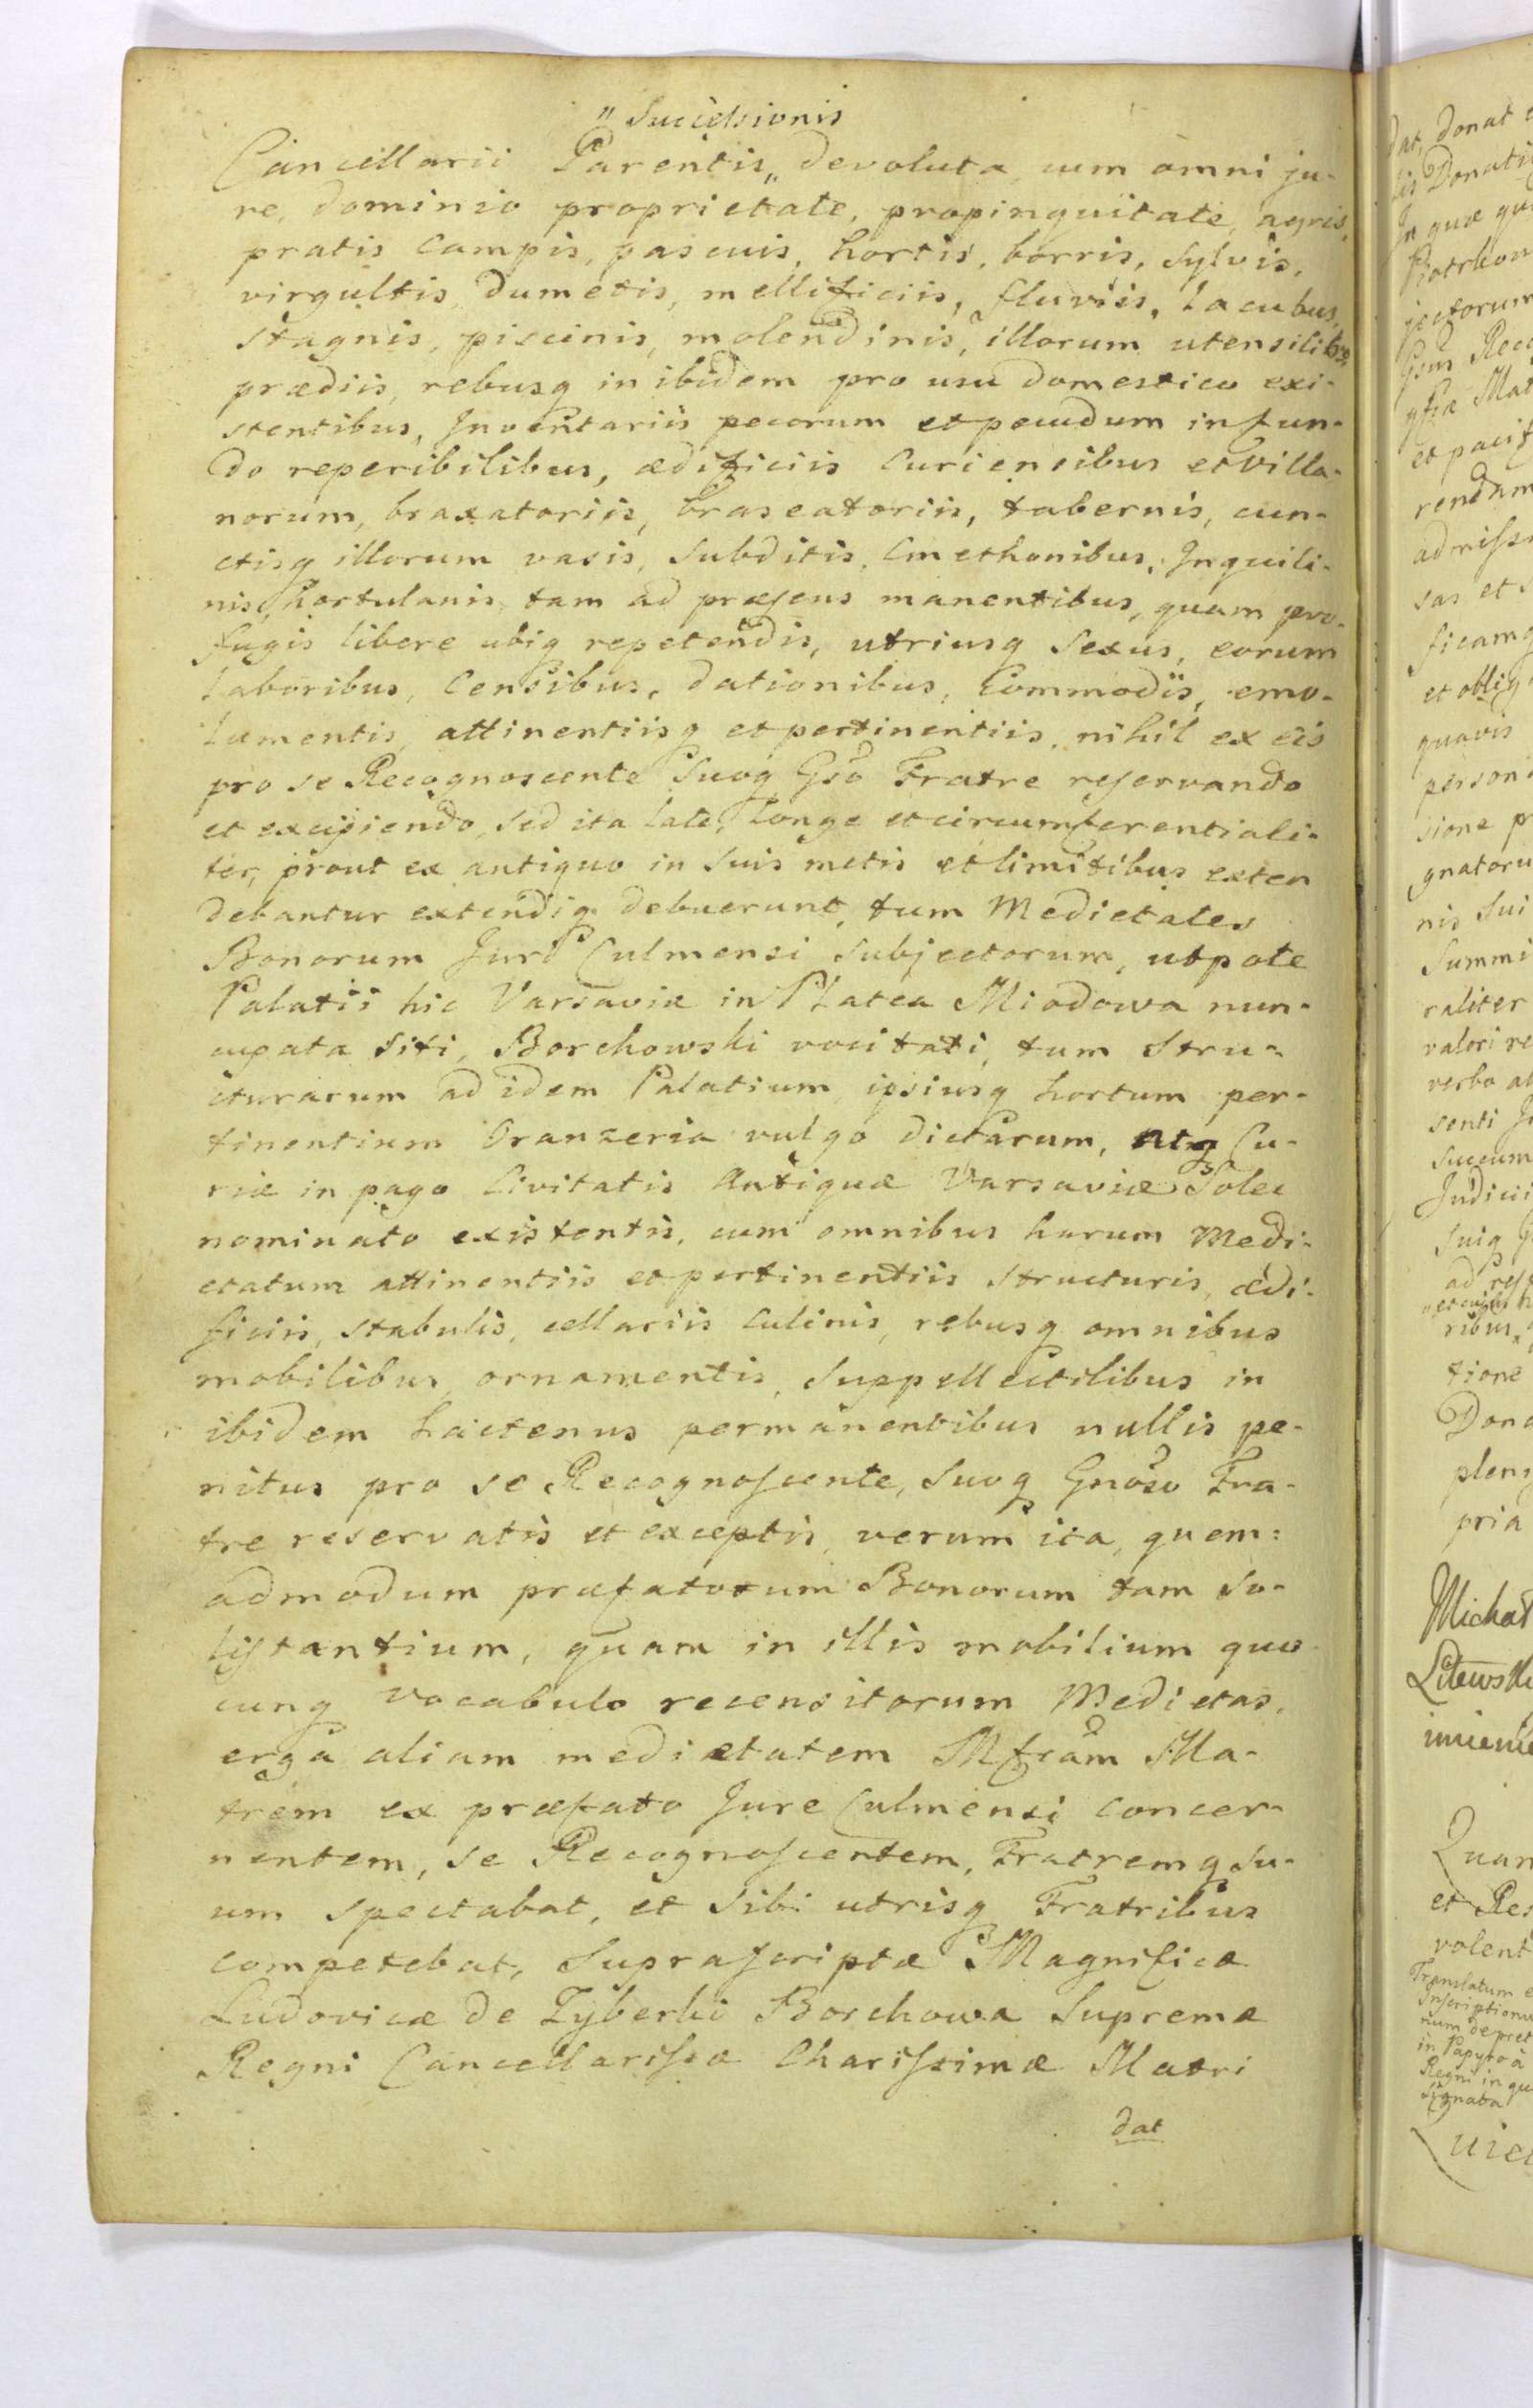 „ Successionis
Cancellarii Parentis „ devoluta, cum omni ju-
re, dominio proprietate, propinquitate, agris,
pratis campis, pascuis, hortis, borris, sylvis,
virgultis dumetis, mellificiis, fluviis, Lacubus,
stagnis, piscinis, molendinis, illorum utensilibus
prædiis, rebusq in ibidem pro usu domestico exi-
stentibus, Inventariis pecorum et pecudum in fun-
do reperibilibus, ædificiis Curiensibus et Villa-
norum, braxatoriis, braseatoriis, tabernis, cun-
ctisq illorum vasis, Subditis, Cmethonibus, Inquili-
nis, hortulanis, tam ad præsens manentibus, quam pro-
fugis libere ubiq repetendis, utriusq Sexus, eorum
Laboribus, Censibus, dationibus, Commodis, emo-
lumentis, attinentiisq et pertinentiis, nihil ex eis
pro se Recognoscente Suoq Gso Fratre reservando
et excipiendo, sed ita late, longe et circumferentiali-
ter, prout ex antiquo in suis metis et limitibus exten
debantur extendiq debuerunt, tum Medietates
Bonorum Juri Culmensi subjectorum, utpote
Palatii hic Varsaviæ in Platea Miodowa nun-
cupata siti, Borchowski vocitati, tum Stru-
cturarum ad idem Palatium, ipsiusq hortum per-
tinentium Oranzeria vulgo dictarum, atq Cu-
riæ in pago Civitatis Antiquæ Varsaviæ Solec
nominato existentis, cum omnibus harum Medi-
etatum attinentiis et pertinentiis structuris, ædi-
ficiis, stabulis, cellariis Culinis, rebusq omnibus
mobilibus, ornamentis, Suppellectilibus in
ibidem hactenus permanentibus nullis pe-
nitus pro se Recognoscente, Suoq Gnoso Fra-
tre reservatis et exceptis, verum ita, quem:
admodum præfatorum Bonorum tam so-
listantium, quam in illis mobilium quo-
cunq vocabulo recensitorum Medietas,
erga aliam medietatem Mfcam Ma-
trem ex præfato Jure Culmensi concer-
nentem, se Recognoscentem, Fratremq su-
um spectabat, et sibi utrisq Fratribus
competebat, Suprascriptæ Magnificæ
Ludovicæ de Zyberki Borchowa Supremæ
Regni Cancellarissæ Charissimæ Matri
dat